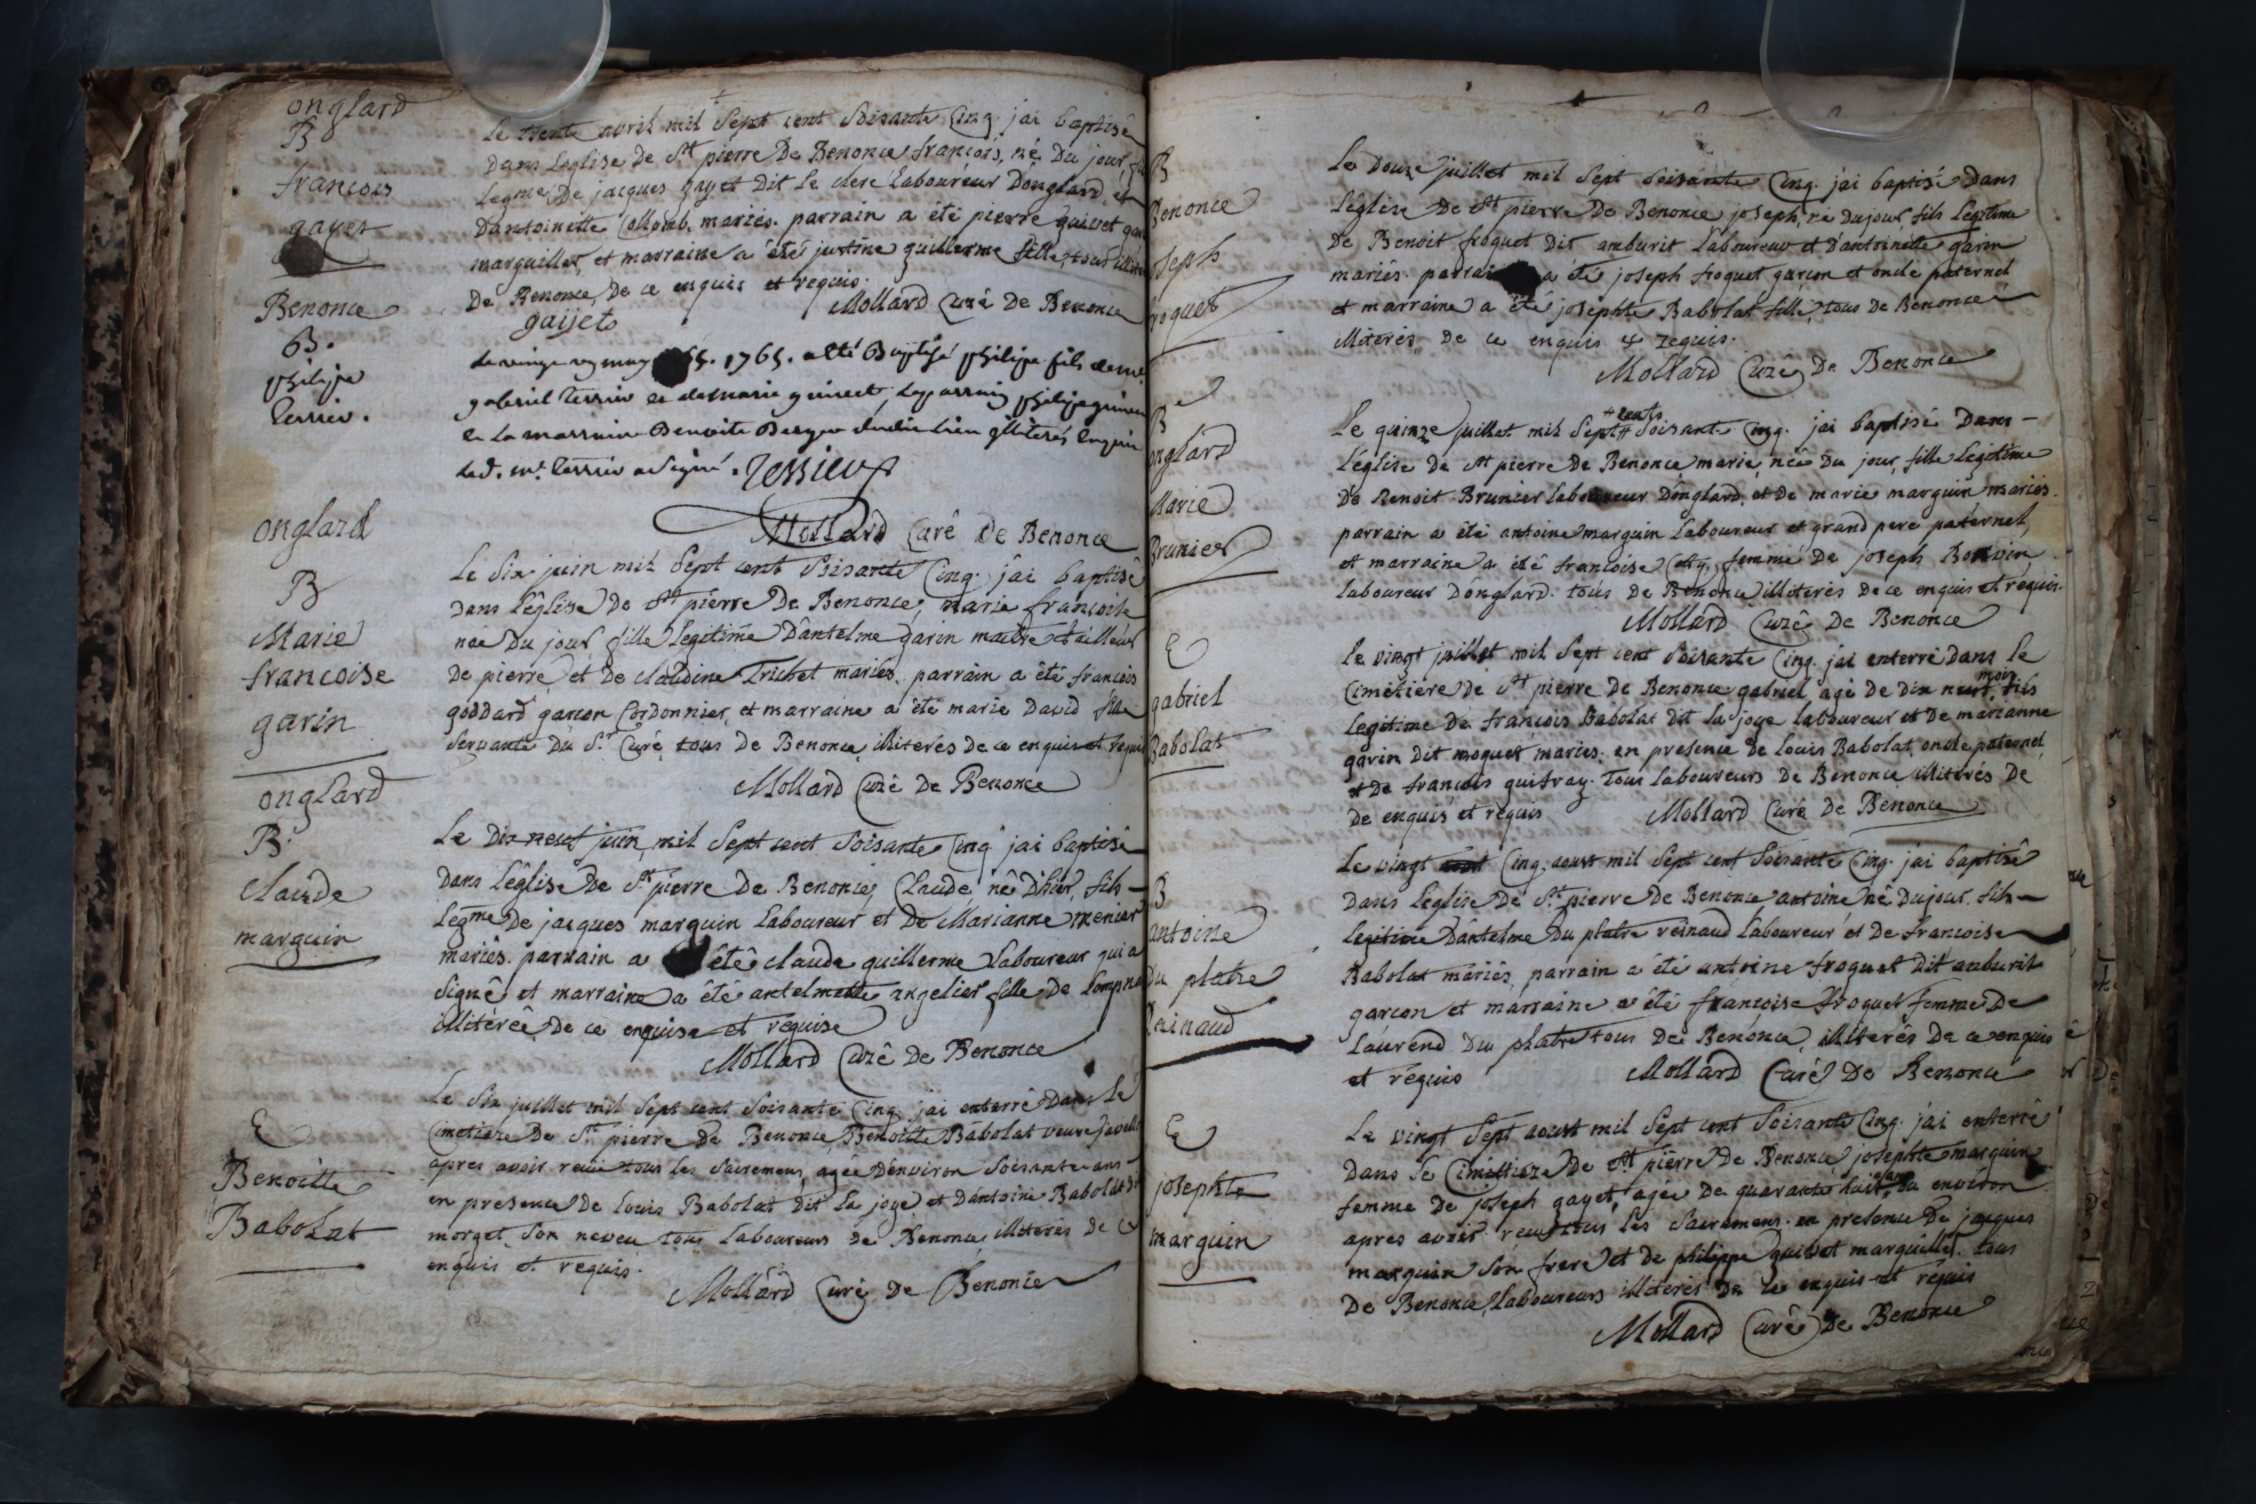 onglard
B
francois
gayet
Le trente avril mil Sept cent Soisante Cinq. jai baptisé
dans Leglise de St pierre De Benonce francois, né Du jour,
Legme De jacques gayet Dit le clerc Laboureur Donglard et
Dantoinette Collomb, mariés. parrain a été pierre quivet
marguiller, et marraine a été justine guillerme fille, tous
De Benonce, De ce enquis et requis.
gaijet
Mollard Curé De Benonce
Benonce
B.
philipe
Tessier.
Le vingt may 1765. a été Baptisé philipe fils de
gabriel Tessier et de marie guinet, le parrain philipe
et la marraine Benoite Berger dudit lieu illiterés enquis
Led. mr. Tessier a Signé. Tessieur
Mollard Curé De Benonce
onglard
B
Marie
francoise
garin
Le Six juin mil Sept cent Soisante Cinq. jai baptisé
dans L'église De St pierre De Benonce, marie francoise
née Du jour fille legitime D'antelme garin maitre tailleur
De pierre et De claudine Trichet mariés. parrain a été francois
goddard garcon Cordonnier, et marraine a été marie David fille
Servante Du Sr Curé tous De Benonce illiterés de ce enquis et requis
Mollard Curé De Benonce
onglard
B.
claude
marguin
Le Dix neuf juin, mil Sept cent Soisante Cinq jai baptisé
Dans L'église De St pierre De Benonce, Claude né D'hier, fils
Legme De jacques marguin Laboureur et De Marianne menier
mariés. parrain a été claude guillerme Laboureur qui a
Signé et marraine a été antelmette angelier fille De Lompna
illitérée De ce enquise et requise
Mollard Curé De Benonce
E
Benoitte
Babolat
Le Six juillet mil Sept cent Soisante Cinq jai enterré Dans Le
Cimetiere De St pierre De Benonce Benoitte Babolat veuve
apres avoir recu tous Les Sacremens, agée D'environ Soisante ans
en presence De Louis Babolat dit La joye et D'antoine Babolat
morget Son neveu tous Laboureurs de Benonce illiterés De ce
enquis et requis.
Mollard Curé De Benonce
B
Benonce
joseph
froquet
Le Douze juillet mil Sept Soisante Cinq. jai baptisé Dans
L'église De St pierre De Benonce joseph, né Dujour, fils Legitime
De Benoit froquet Dit amburit Laboureur et D'antoinette garin
mariés. parrain a été joseph froquet garcon et oncle paternel
et marraine a été josephte Babolat fille, tous De Benonce
illiterés De ce enquis & requis.
Mollard Curé De Benonce
B
onglard
Marie
Brunier
Le quinze juillet mil Sept cents Soisante Cinq. jai baptisé Dans
L'église de St pierre De Benonce marie, née Du jour, fille Legitime
De Benoit Brunier laboureur Donglard, et De marie marguin mariés.
parrain a été antoine marguin Laboureur et grand pere paternel,
et marraine a été francoise femme De joseph Bonvoin
laboureur Donglard. tous De Benonce illiterés De ce enquis et requis.
Mollard Curé De Benonce
E
gabriel
Babolat
Le vingt juillet mil Sept cent Soisante Cinq. jai enterré Dans Le
Cimetiere De St pierre De Benonce gabriel agé De Dix neuf mois fils
Legitime De francois Babolat Dit La joye laboureur et De marianne
garin Dit moquet mariés; en presence De Louis Babolat oncle paternel
et De francois guifray. tous Laboureurs De Benonce illiterés De
De enquis et requis
Mollard Curé De Benonce
B
antoine
Du platre
Reinaud
Le vingt Cinq aoust mil Sept cent Soisante Cinq. jai baptisé
Dans L'église De St pierre De Benonce antoine né Dujour. fils
Legitime D'antelme Du platre reinaud Laboureur et De francoise
Babolat mariés, parrain a été antoine froquet Dit amburit
garcon et marraine a été francoise froquet femme De
Laurend Du platre tous De Benonce, illiterés De ce enquis
et requis
Mollard Curé De Benonce
E
josephte
marguin
Le vingt Sept aoust mil Sept cent Soisante Cinq. jai enterré
Dans Le Cimettiere De St pierre De Benonce josephte marguin
femme De joseph gayet, agée De quarante huit ans ou environ
apres avoir recu tous Les Sacremens. en presence De jacques
marguin Son frere et de philippe quivet marguiller. tous
De Benonce, Laboureurs illiterés De ce enquis et requis
Mollard Curé De Benonce